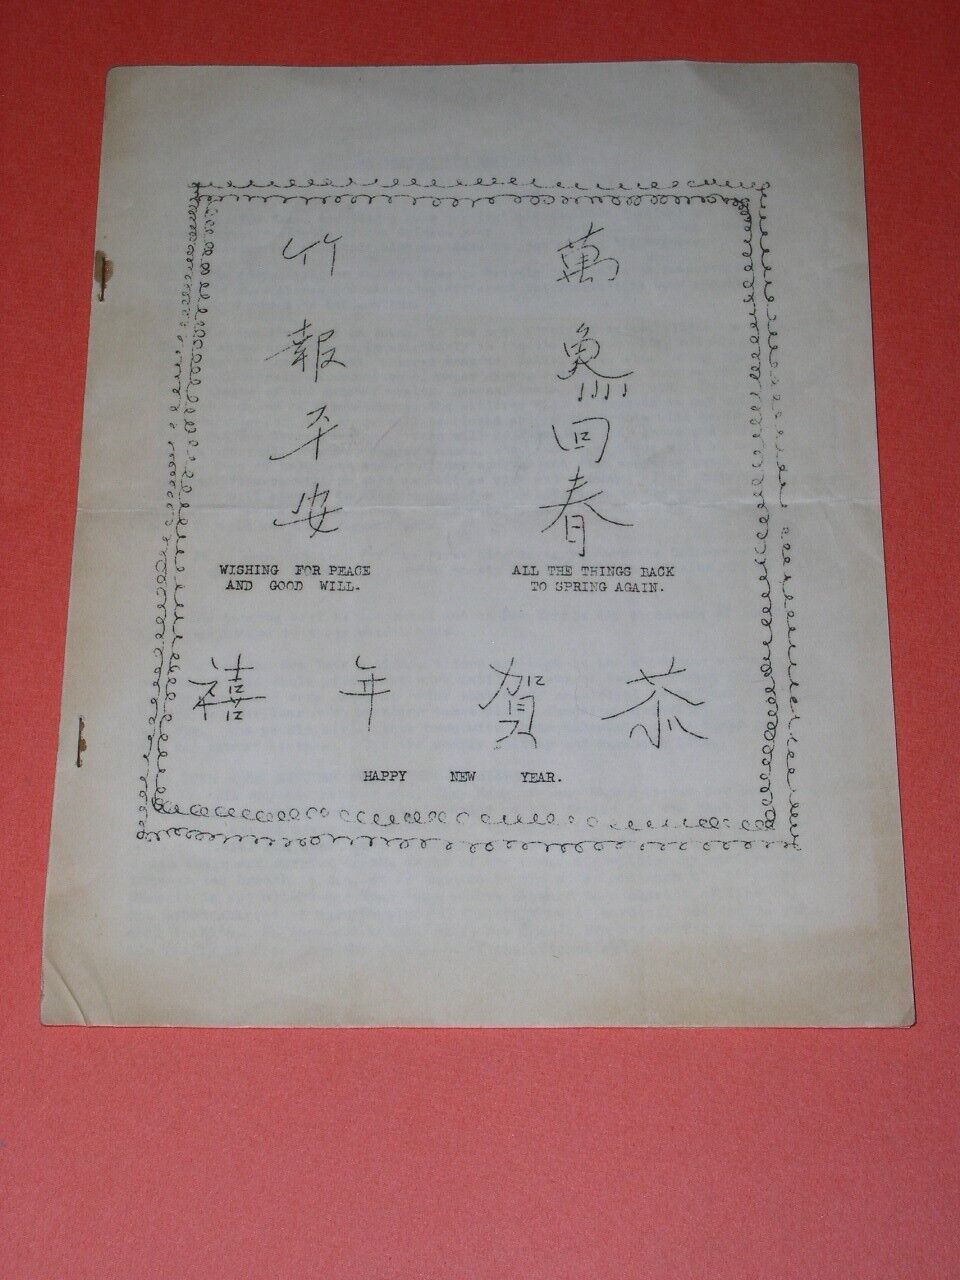 萬象回春
竹報平安
WISHING FOR PEACE
AND GOOD WILL.
ALL THE THINGS BACK
TO SPRING AGAIN.
恭賀年禧
HAPPY NEW YEAR.